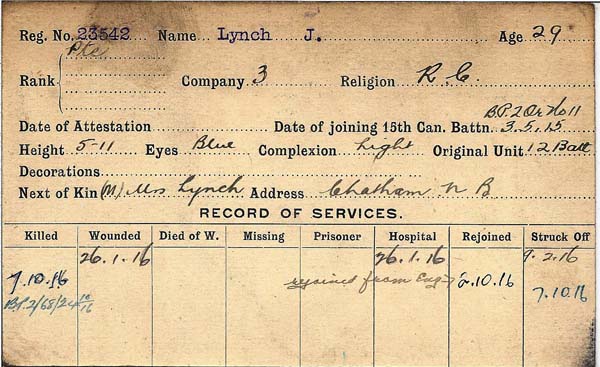 Reg. No. 23542 Name Lynch J. Age 29
Pte
Rank Company 3 Religion R. C.
B.P. 2 Or No 11
Date of Attestation Date of joining 15th Can. Battn. 3.5.15
Height 5-11 Eyes Blue Complexion Light Original Unit 12 Batt
Decorations
Next of Kin (M) Mrs Lynch Address Chatham N B
RECORD OF SERVICES.
Killed Wounded Died of W. Missing Prisoner Hospital Rejoined Struck Off
26.1.16 26.1.16 9.2.16
7.10.16 rejoined from Eng 2.10.16 7.10.16
B.P.2/68/24